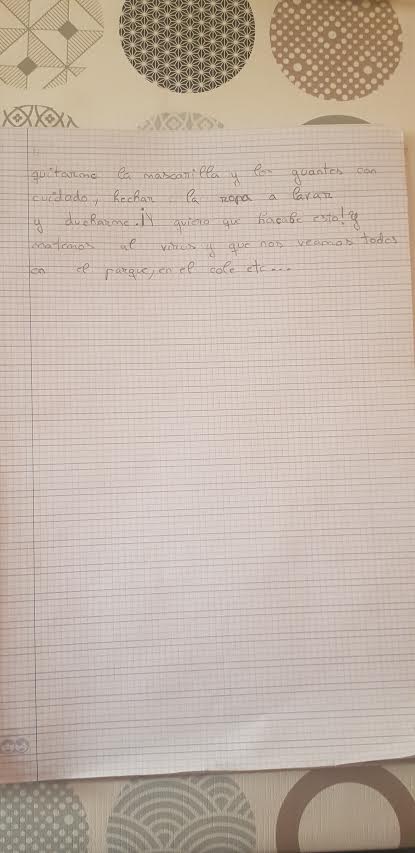 quitarme la mascarilla y los guantes con
cuidado, hechar la ropa a lavar
y ducharme. ¡Y quiero que hacabe esto! y
matemos al virus y que nos veamos todos
en el parque, en el cole etc...